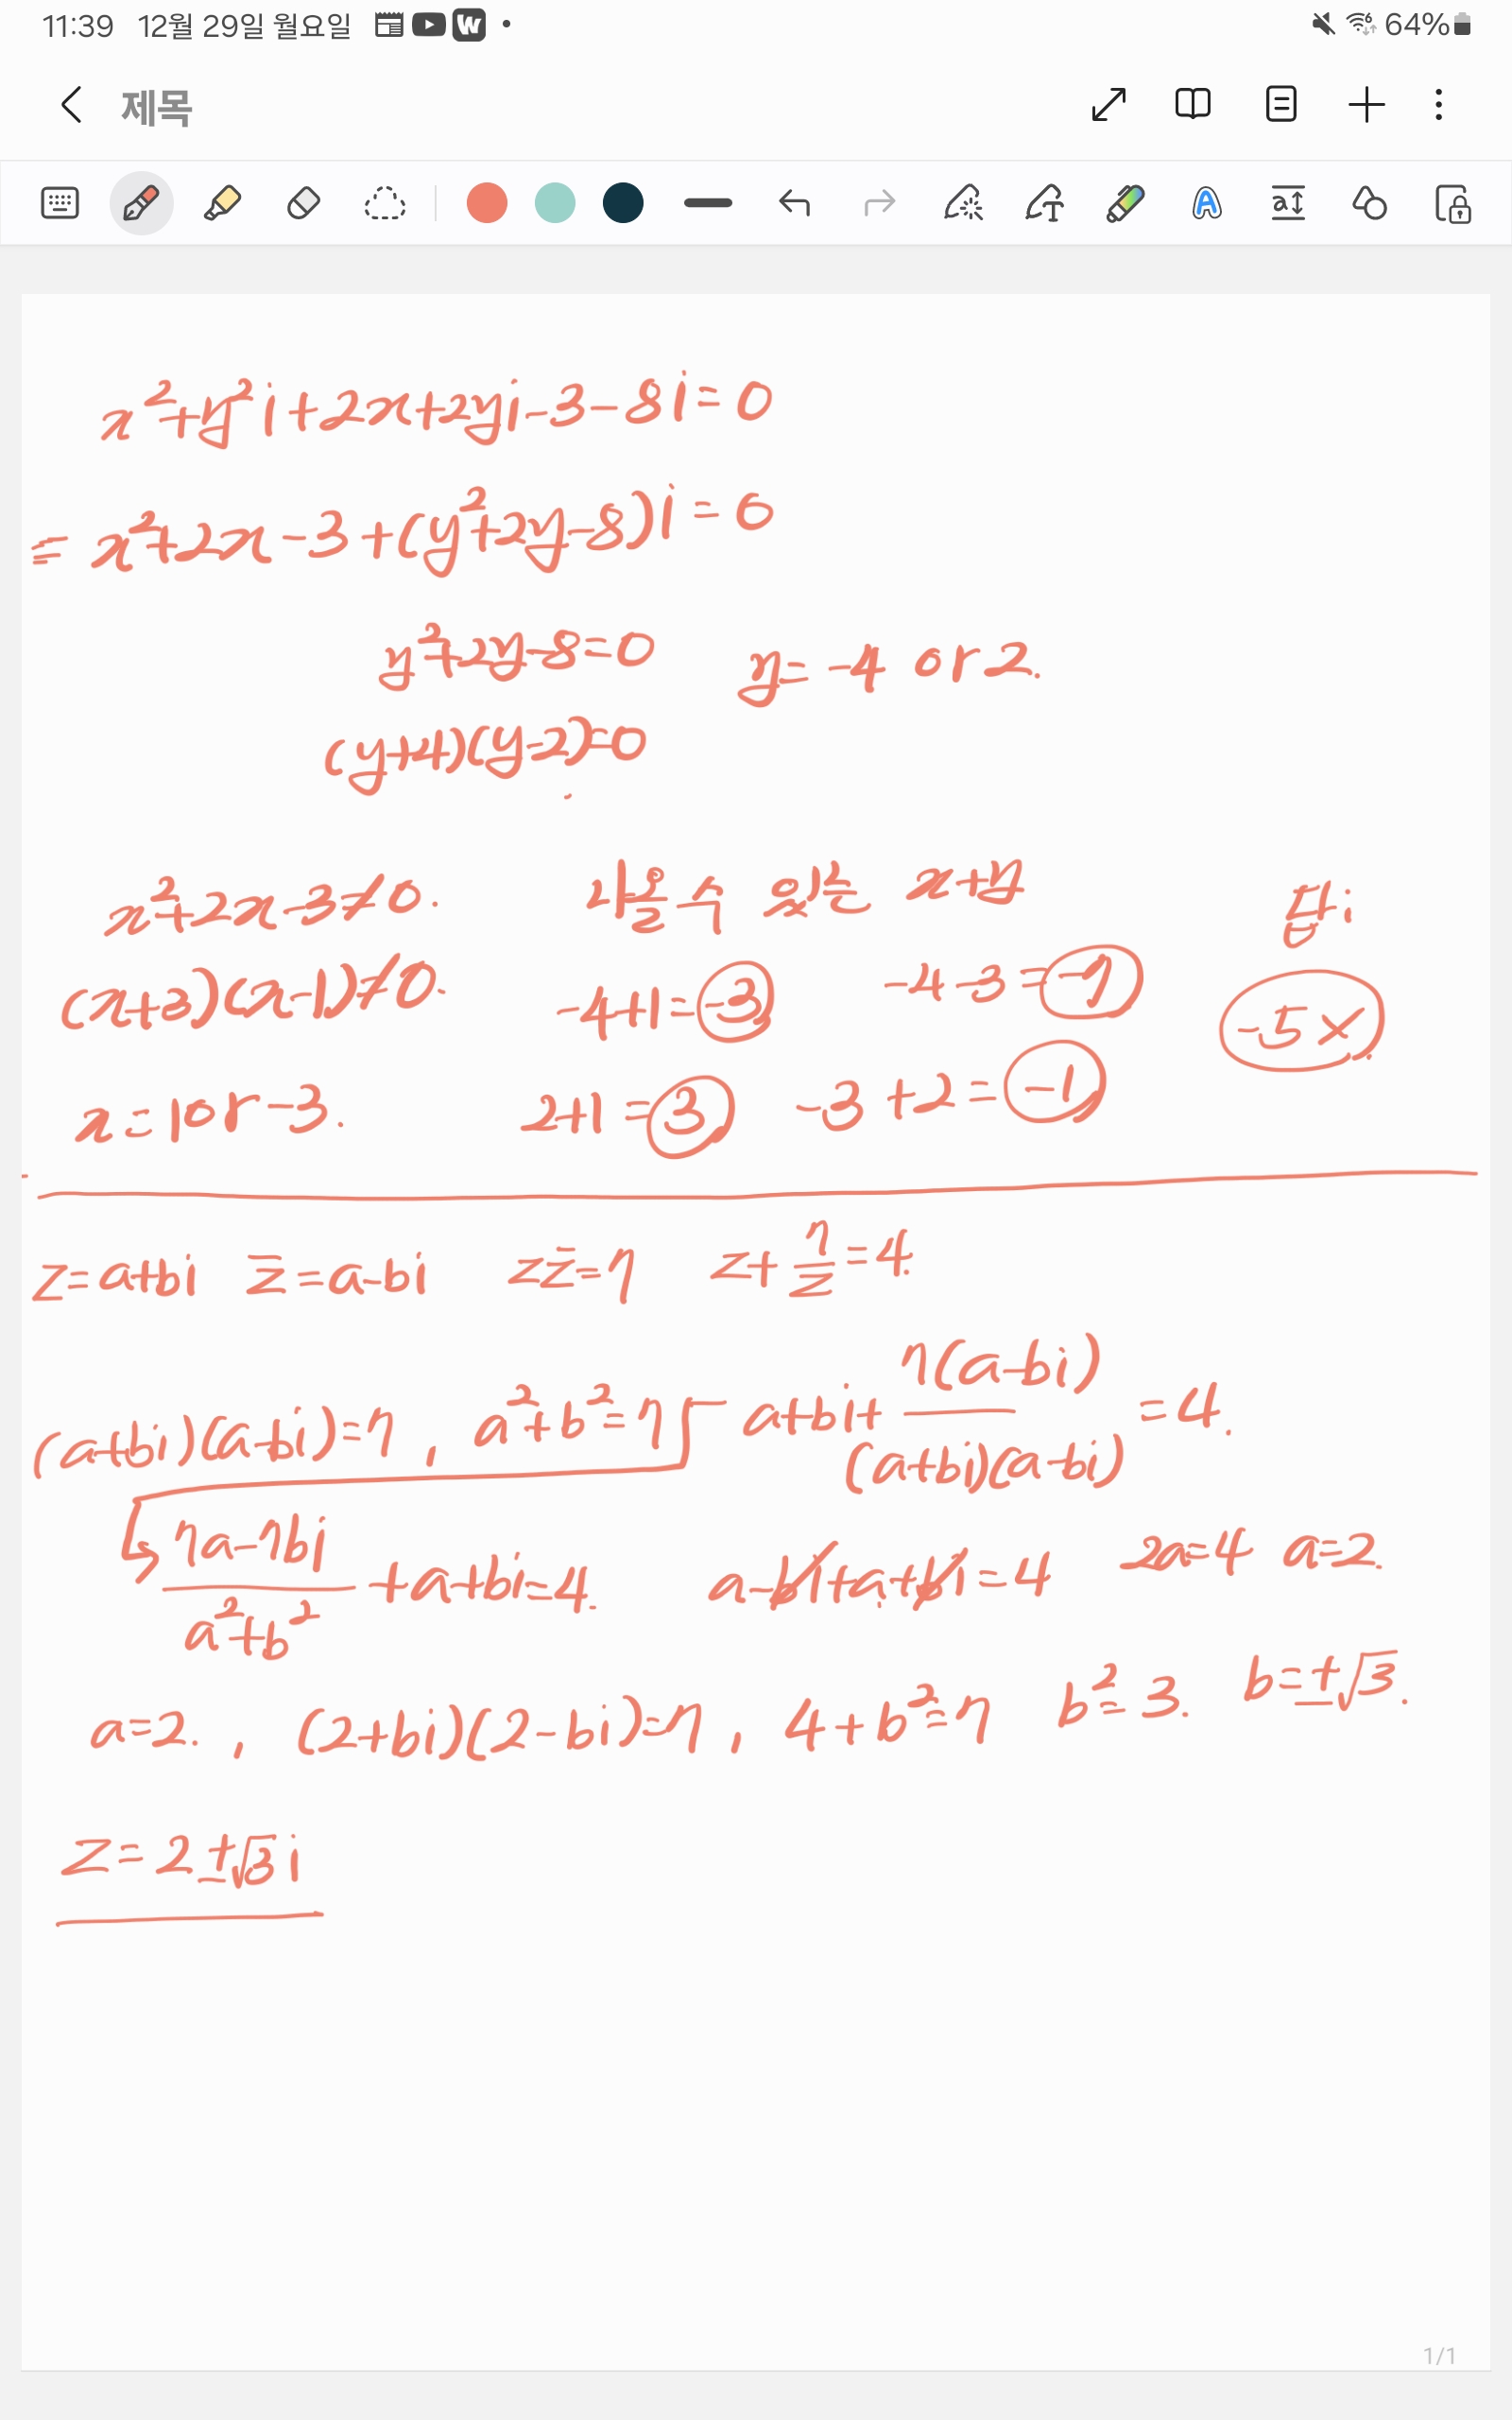 11:39 12월 29일 월요일 64%
제목
x²+y²i+2x+2yi-3-8i=0
= x²+2x-3+(y²+2y-8)i=0
y²+2y-8=0 y=-4 or 2.
(y+4)(y-2)=0
x²+2x-3≠0. 나올 수 있는 x+y
(x+3)(x-1)≠0. -4+1=-3 -4-3=-7 -5 x.
x=1 or -3. 2+1=3 -3+2=-1
z=a+bi z̄=a-bi zz̄=7 z+7/z=4.
(a+bi)(a-bi)=7, a²+b²=7 a+bi+7(a-bi)/(a+bi)(a-bi)=4.
7a-7bi/a²+b² +a+bi=4. a-bi+a+bi=4 2a=4 a=2.
a=2., (2+bi)(2-bi)=7, 4+b²=7 b²=3. b=±√3.
z=2±√3i
1/1